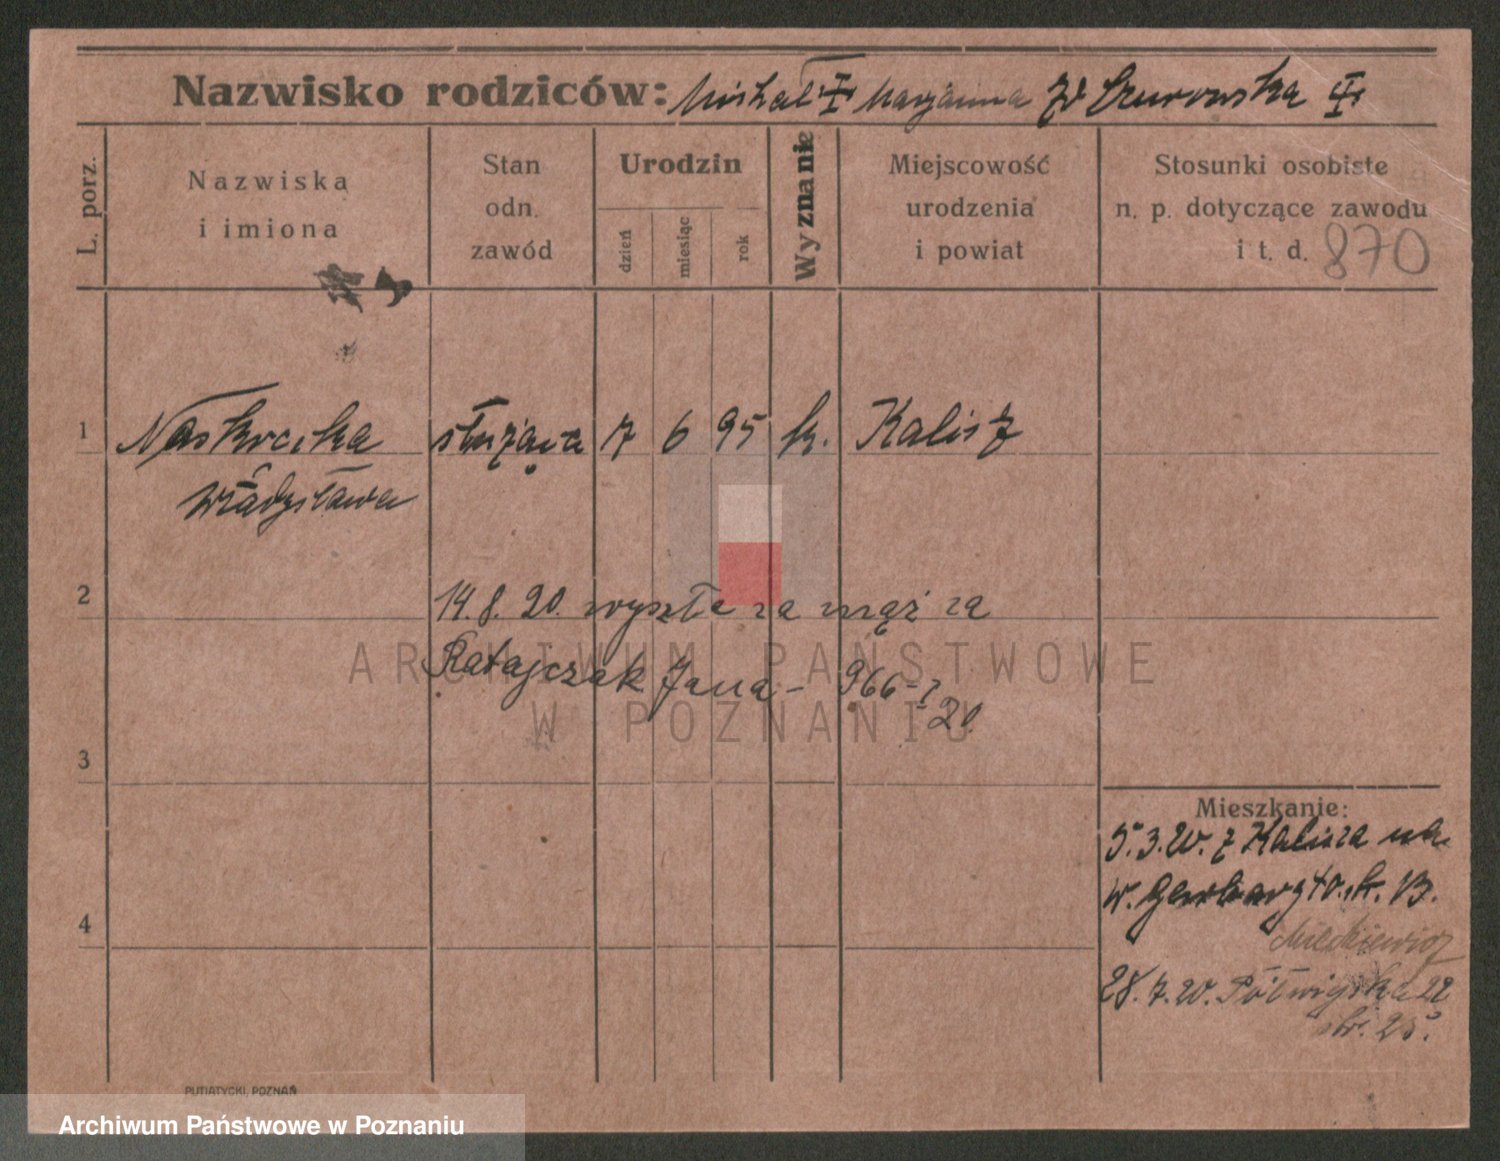 Nazwisko rodziców: Michał Marjanna zd Czurowska
L. porz.
Nazwiska
i imiona
Stan
odn.
zawód
Urodzin
dzień
miesiąc
rok
Wyznanie
Miejscowość
urodzenia
i powiat
Stosunki osobiste
n. p. dotyczące zawodu
i t. d. 870
1 Naskrecka służąca 7 6 95 k. Kalisz
Władysława
2 14. 8. 20. wyszła za mąż za
Ratajczak Jana - 966 - I
20
ARCHIWUM PAŃSTWOWE
W POZNANIU
3
Mieszkanie:
5. 3. 20. z Kalisza
W. 13.
4
28. 7. 20. Półwiejska 22
PUTIATYCKI, POZNAŃ
Archiwum Państwowe w Poznaniu